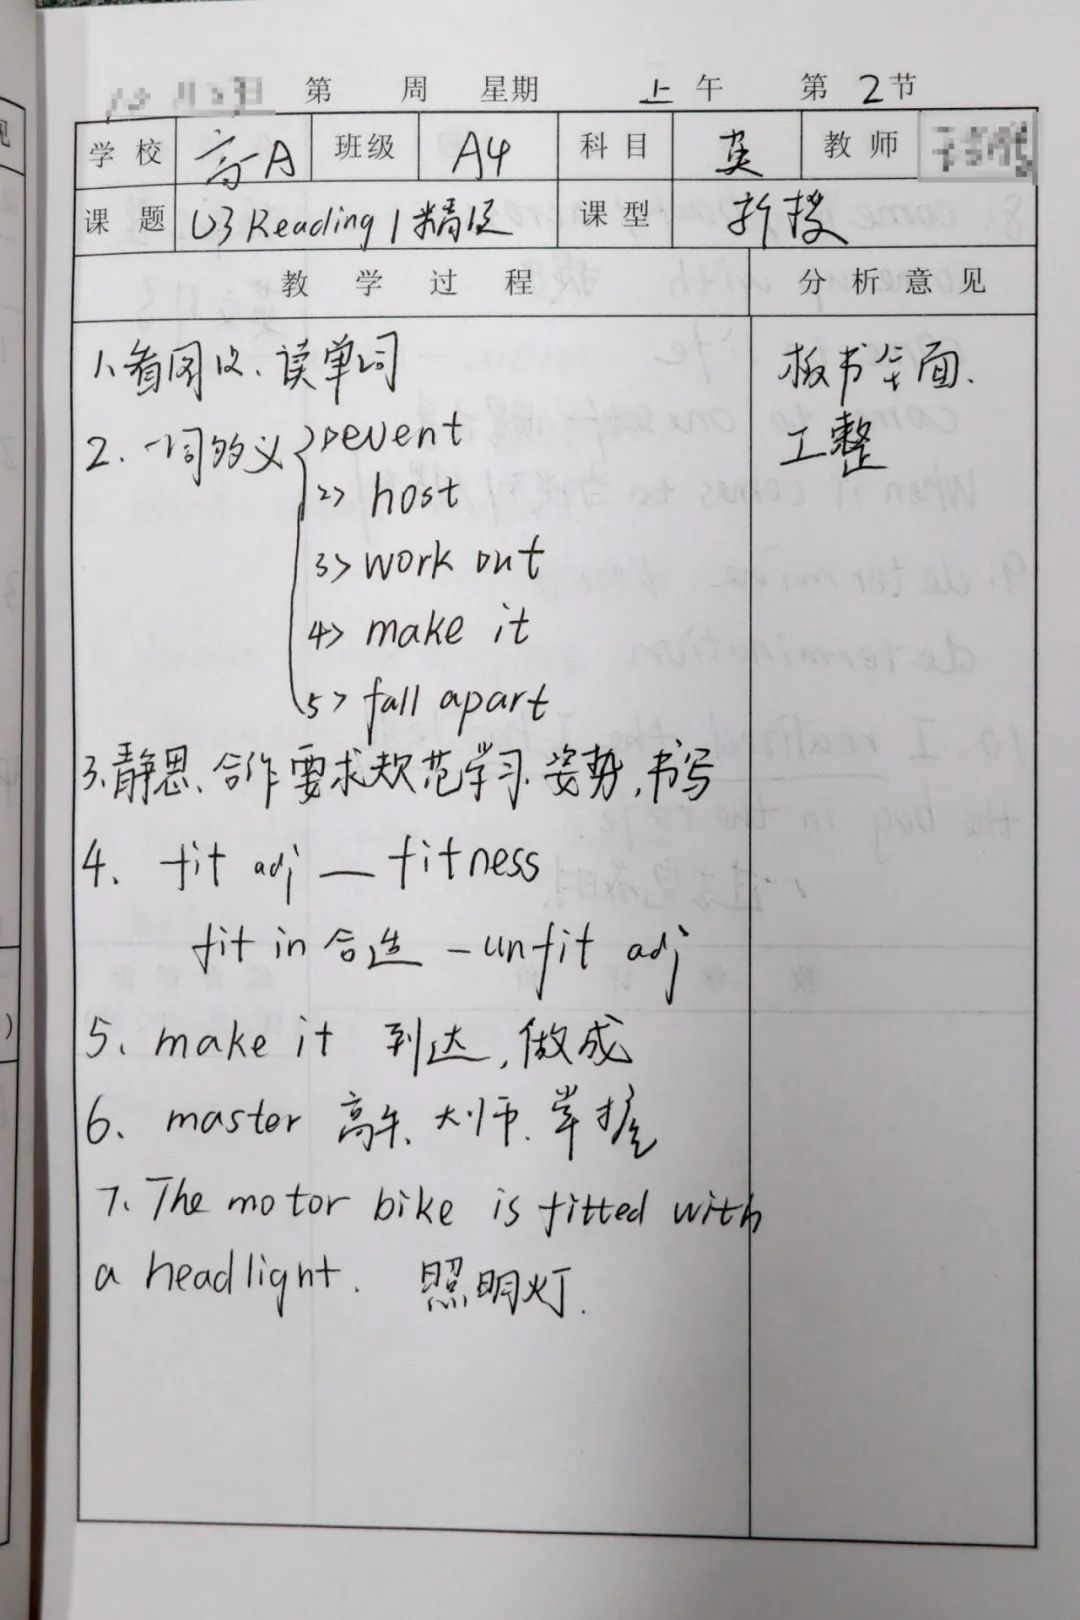 第 周 星期 上午 第2节
学校 高一A 班级 A4 科目 英 教师
课题 U3 Reading 1 精 课型 新授
教学过程 分析意见
1、看图 读单词 板书全面、
2、一词多义 1> event 工整
2> host
3> work out
4> make it
5> fall apart
3、静思、合作要求规范学习、姿势,书写
4、fit adj — fitness
fit in 合适 — unfit adj
5、make it 到达,做成
6、master 高手、大师、掌握
7、The motor bike is fitted with
a headlight. 照明灯.